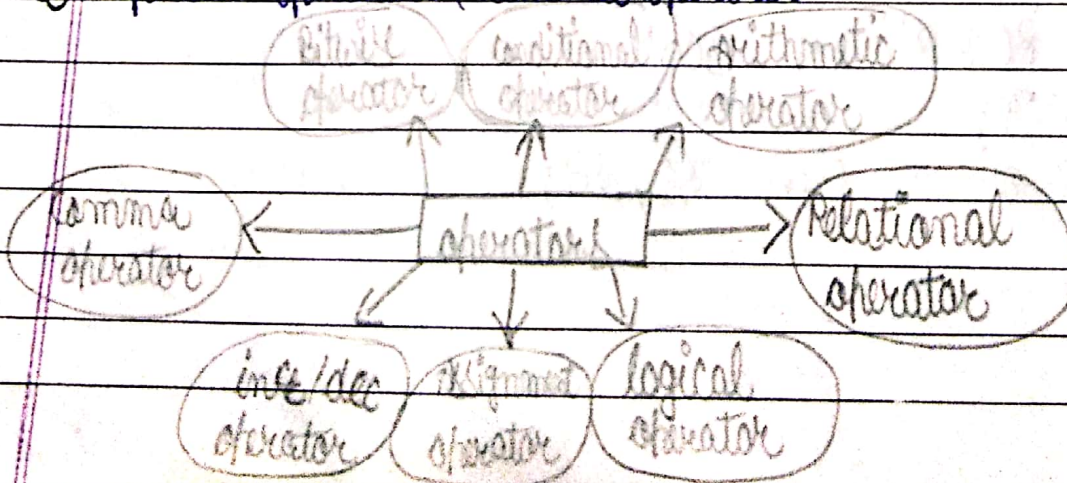 Bitwise
operator
conditional
operator
Arithmetic
operator
comma
operator
operators
Relational
operator
inc/dec
operator
Assignment
operator
logical
operator